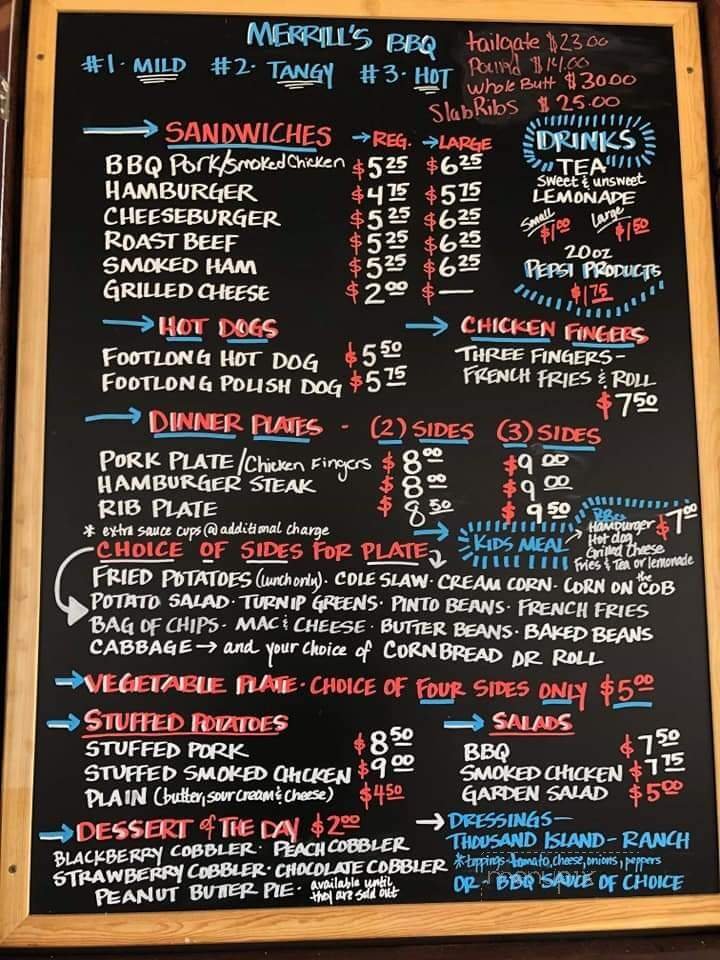 MERRILL'S BBQ
#1. MILD #2. TANGY #3. HOT
tailgate $23.00
Pound $14.00
whole Butt $30.00
Slab Ribs $25.00
SANDWICHES → REG. → LARGE
BBQ Pork/Smoked Chicken $5.25 $6.25
HAMBURGER $4.75 $5.75
CHEESEBURGER $5.25 $6.25
ROAST BEEF $5.25 $6.25
SMOKED HAM $5.25 $6.25
GRILLED CHEESE $2.00 $—
DRINKS
TEA
Sweet & unsweet
LEMONADE
Small $1.00 Large $1.50
20oz
PEPSI PRODUCTS
$1.75
→ HOT DOGS
FOOTLONG HOT DOG $5.50
FOOTLONG POLISH DOG $5.75
→ CHICKEN FINGERS
THREE FINGERS-
FRENCH FRIES & ROLL
$7.50
→ DINNER PLATES - (2) SIDES (3) SIDES
PORK PLATE/Chicken Fingers $8.00 $9.00
HAMBURGER STEAK $8.00 $9.00
RIB PLATE $8.50 $9.50
* extra sauce cups @ additional charge
KIDS MEAL → BBQ
Hamburger $7.00
Hot dog
Grilled Cheese
Fries & Tea or lemonade
CHOICE OF SIDES FOR PLATE
FRIED POTATOES (lunch only). COLE SLAW. CREAM CORN. CORN ON the COB
POTATO SALAD. TURNIP GREENS. PINTO BEANS. FRENCH FRIES
BAG OF CHIPS. MAC & CHEESE. BUTTER BEANS. BAKED BEANS
CABBAGE → and your choice of CORNBREAD OR ROLL
→ VEGETABLE PLATE. CHOICE OF FOUR SIDES ONLY $5.00
→ STUFFED POTATOES
STUFFED PORK $8.50
STUFFED SMOKED CHICKEN $9.00
PLAIN (butter, sour cream & cheese) $4.50
→ SALADS
BBQ $7.50
SMOKED CHICKEN $7.75
GARDEN SALAD $5.00
→ DESSERT of THE DAY $2.00
BLACKBERRY COBBLER. PEACH COBBLER
STRAWBERRY COBBLER. CHOCOLATE COBBLER
PEANUT BUTTER PIE. available until
they are sold out
→ DRESSINGS—
THOUSAND ISLAND - RANCH
* toppings - tomato, cheese, onions, peppers
OR BBQ SAUCE OF CHOICE